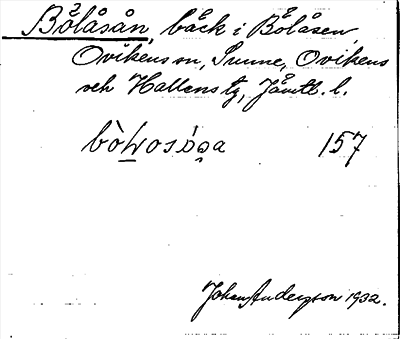 Bölåsån, bäck i Bölåsen,
Ovikens sn, Sunne, Ovikens
och Hallens tg, Jämtl. l.
157
Johan Anderzson 1932.